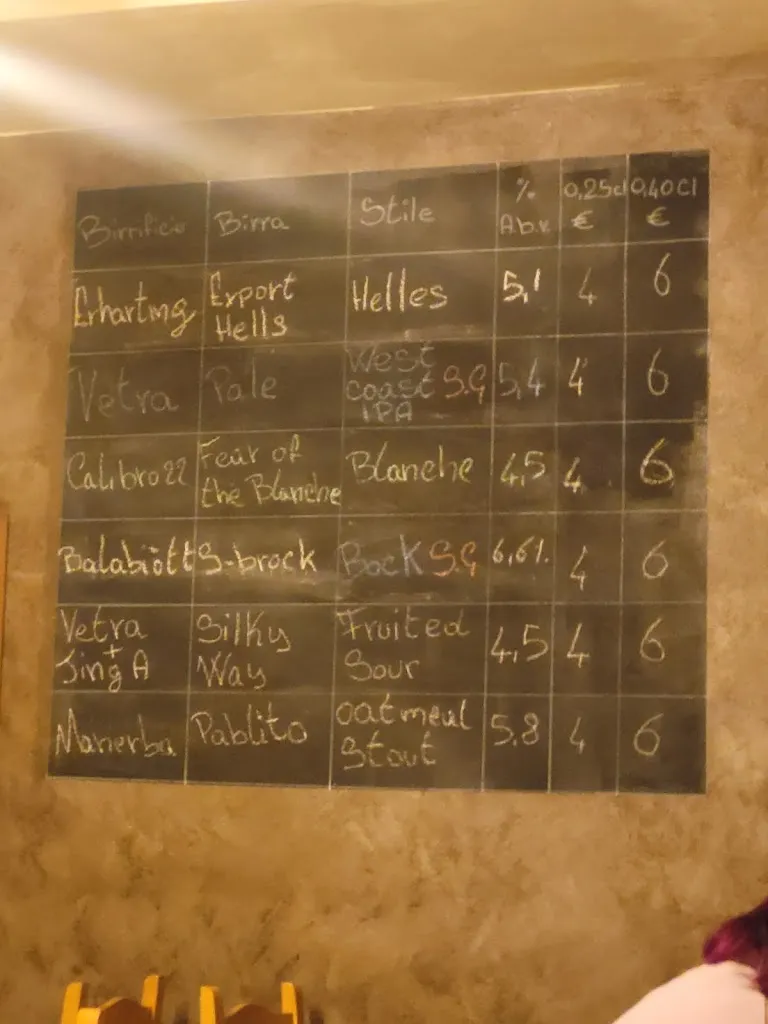 Birrificio Birra Stile % A.b.v. 0,25cl € 0,40cl €
Erharting Export Hells Helles 5,1 4 6
Vetra Pale West coast IPA S.G 5,4 4 6
Calibro 22 Fear of the Blanche Blanche 4,5 4 6
Balabiòtt S-brock Bock S.G 6,6%. 4 6
Vetra + Jing A Silky Way Fruited Sour 4,5 4 6
Manerba Pablito oatmeal Stout 5,8 4 6